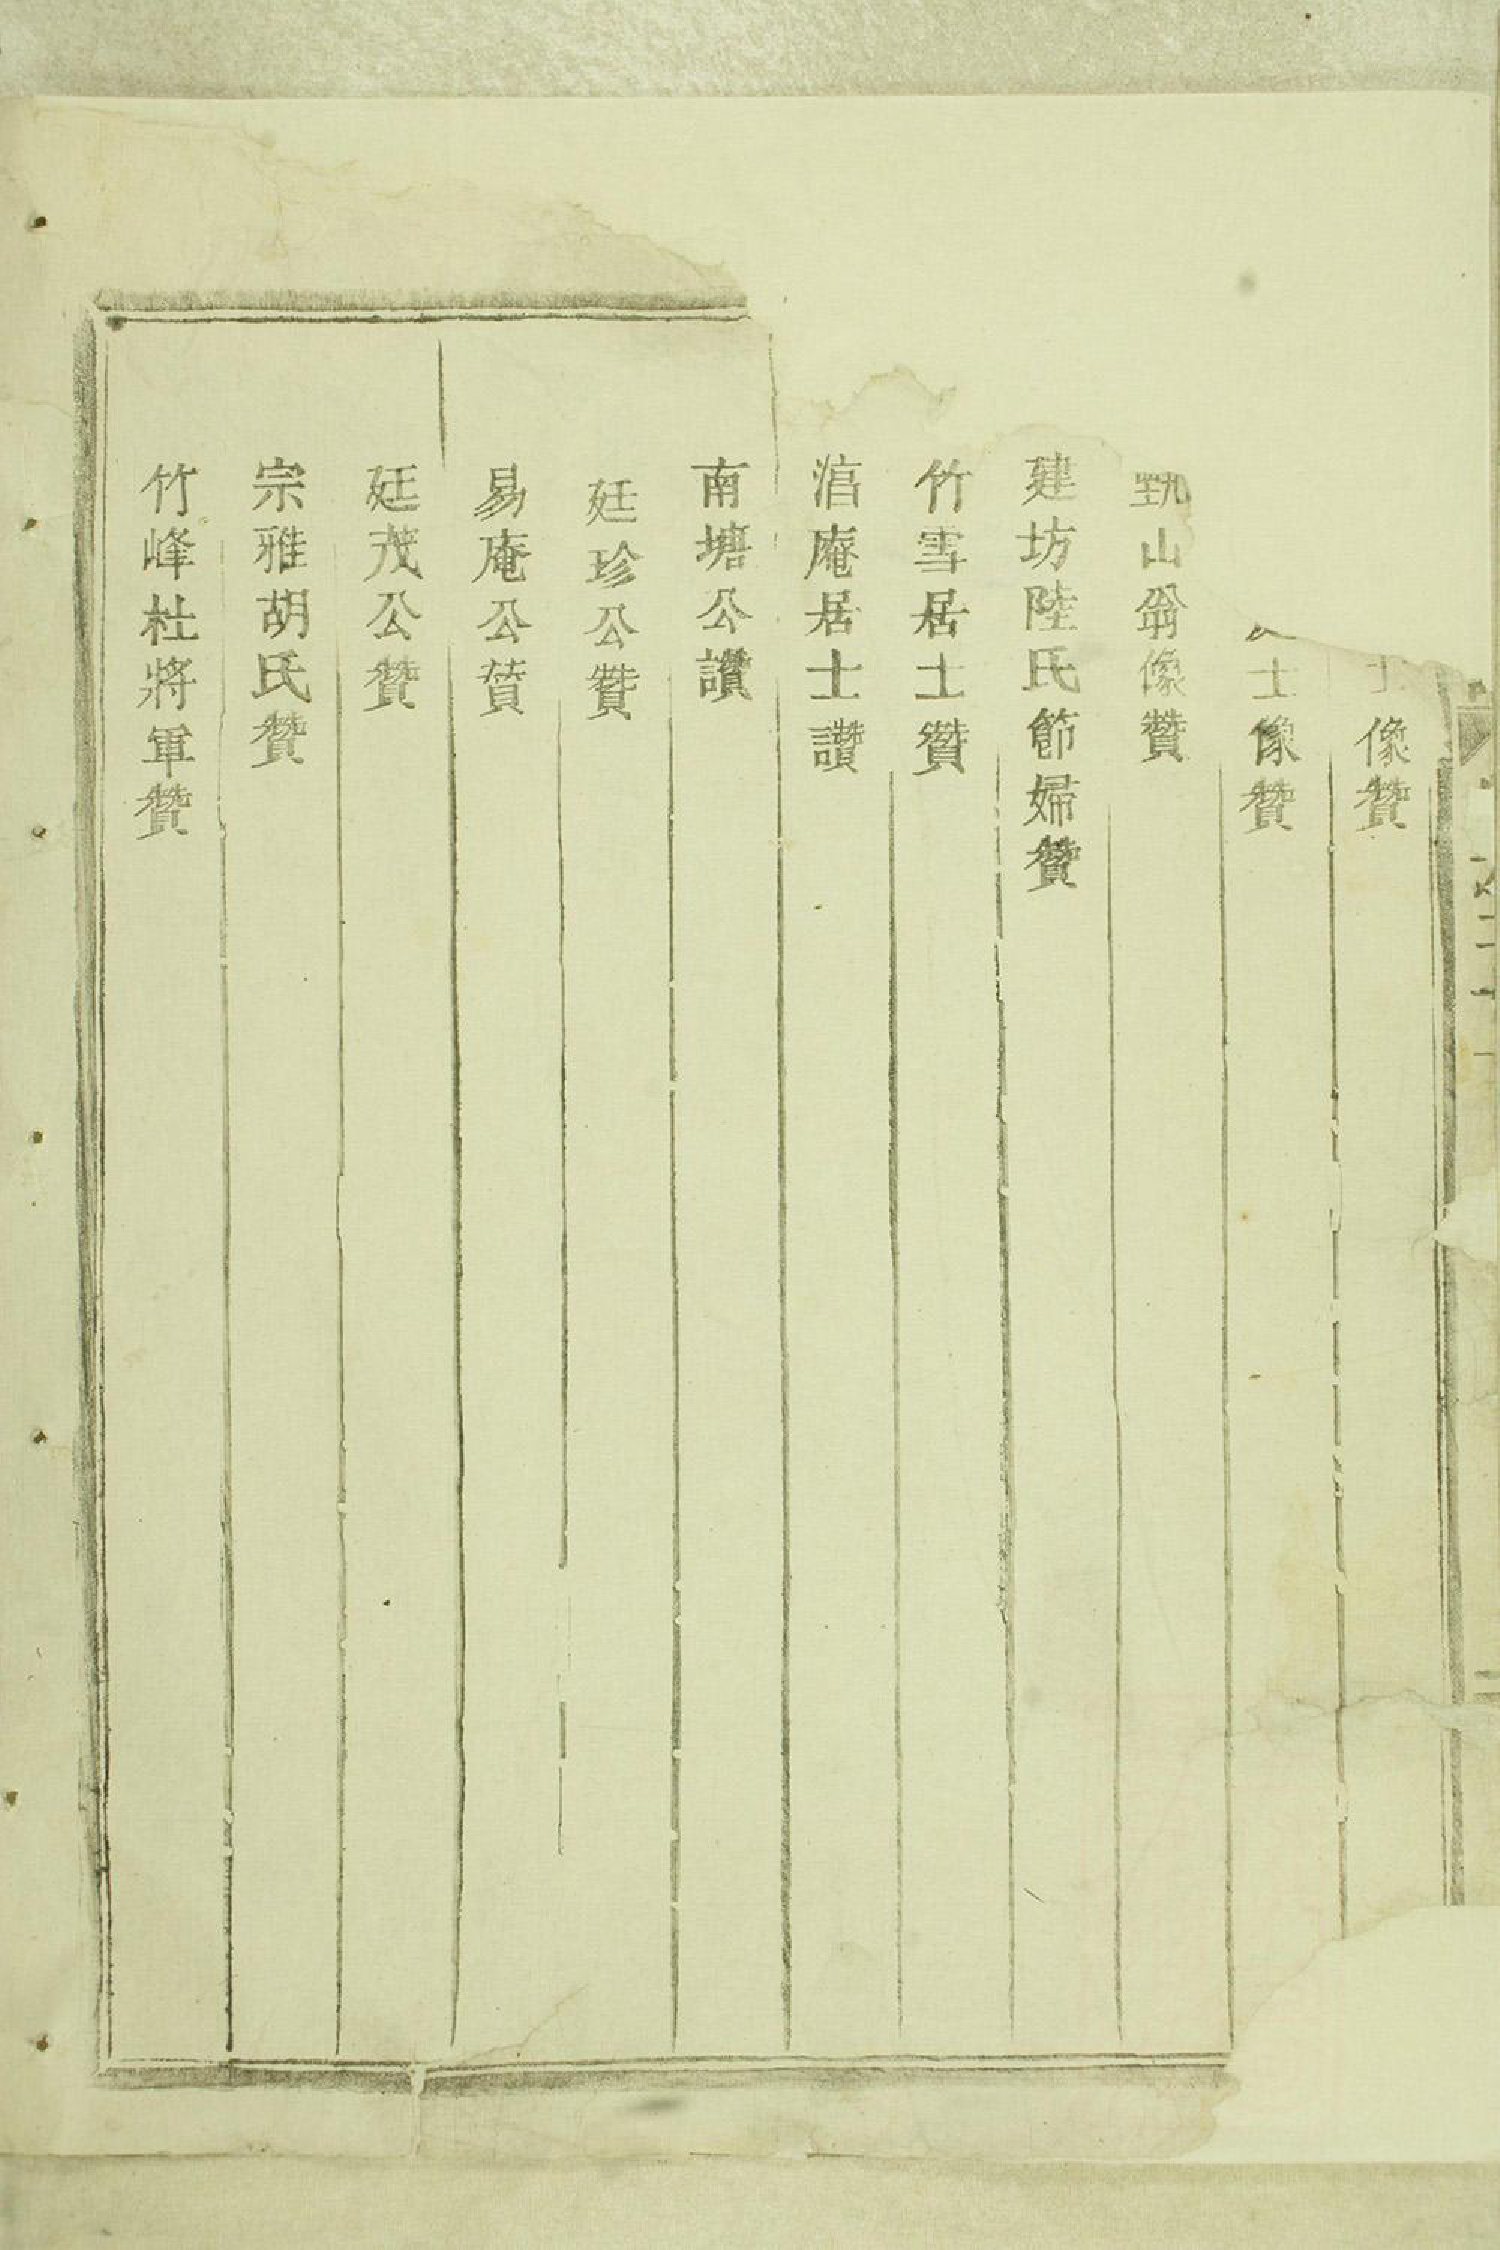 士像贊
士像贊
山翁像贊
建坊陸氏節婦贊
竹雪居士贊
涫庵居士讚
南塘公讚
廷珍公贊
易庵公贊
廷茂公贊
宗雅胡氏贊
竹峰杜將軍贊